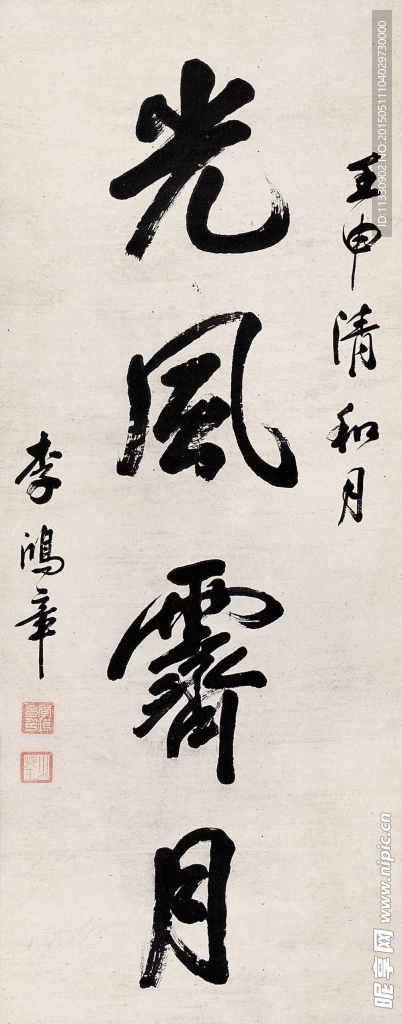 壬申清和月
光風霽月
李鴻章
ID:11330902 NO:20150511104029730000
昵享网 www.nipic.cn